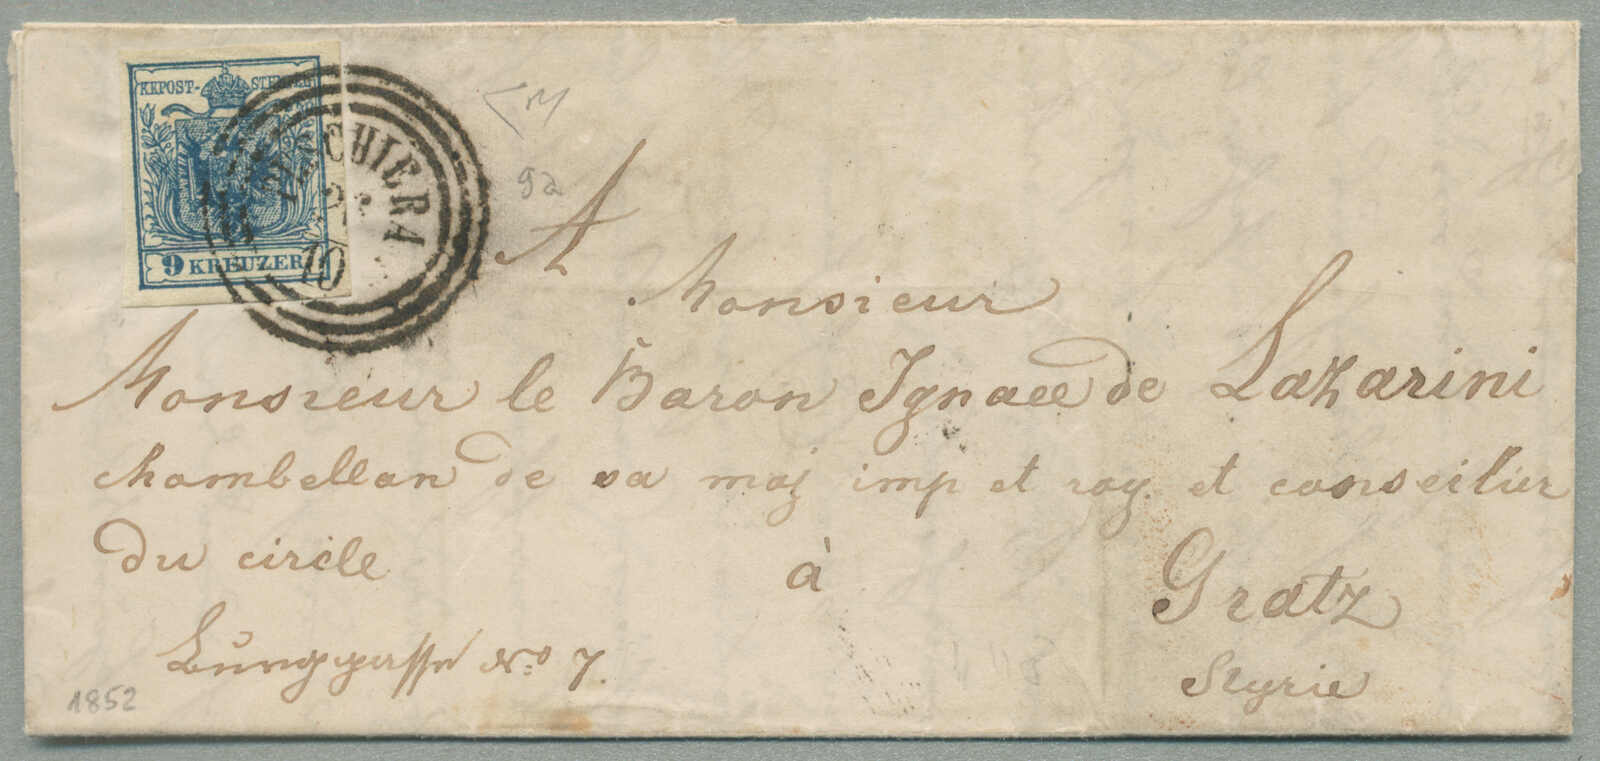 KKPOST-STEMPEL
9 KREUZER
PESCHIERA
10
9a
A
Monsieur
Monsieur le Baron Ignace de Lazarini
chambellan de sa maj imp et roy. et conseilier
du circle
à
Gratz
Burggasse No 7.
Styrie
1852